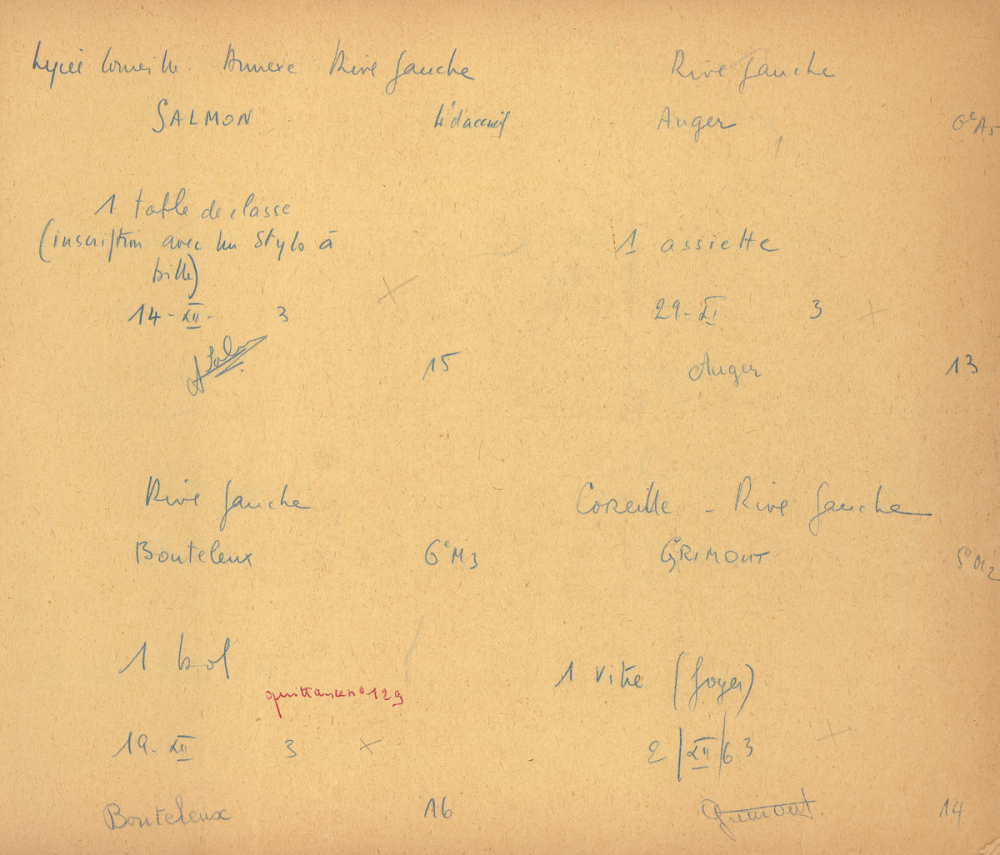 Lycée Corneille. Annexe Rive Gauche
SALMON 4e d'accueil
1 table de classe
(inscription avec un stylo à
bille)
14 - XII - 3
15
Rive Gauche
Auger 6e A5
1 assiette
29 - XI 3
Auger 13
Rive Gauche
Bouteleux 6e M3
1 bol
quittance n° 129
19 - XII 3
Bouteleux 16
Corneille - Rive Gauche
GRIMOUT
1 vitre (foyer)
2 | XII | 63
Grimout 14